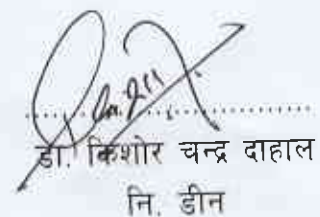 डा. किशोर चन्द्र दाहाल
नि. डीन